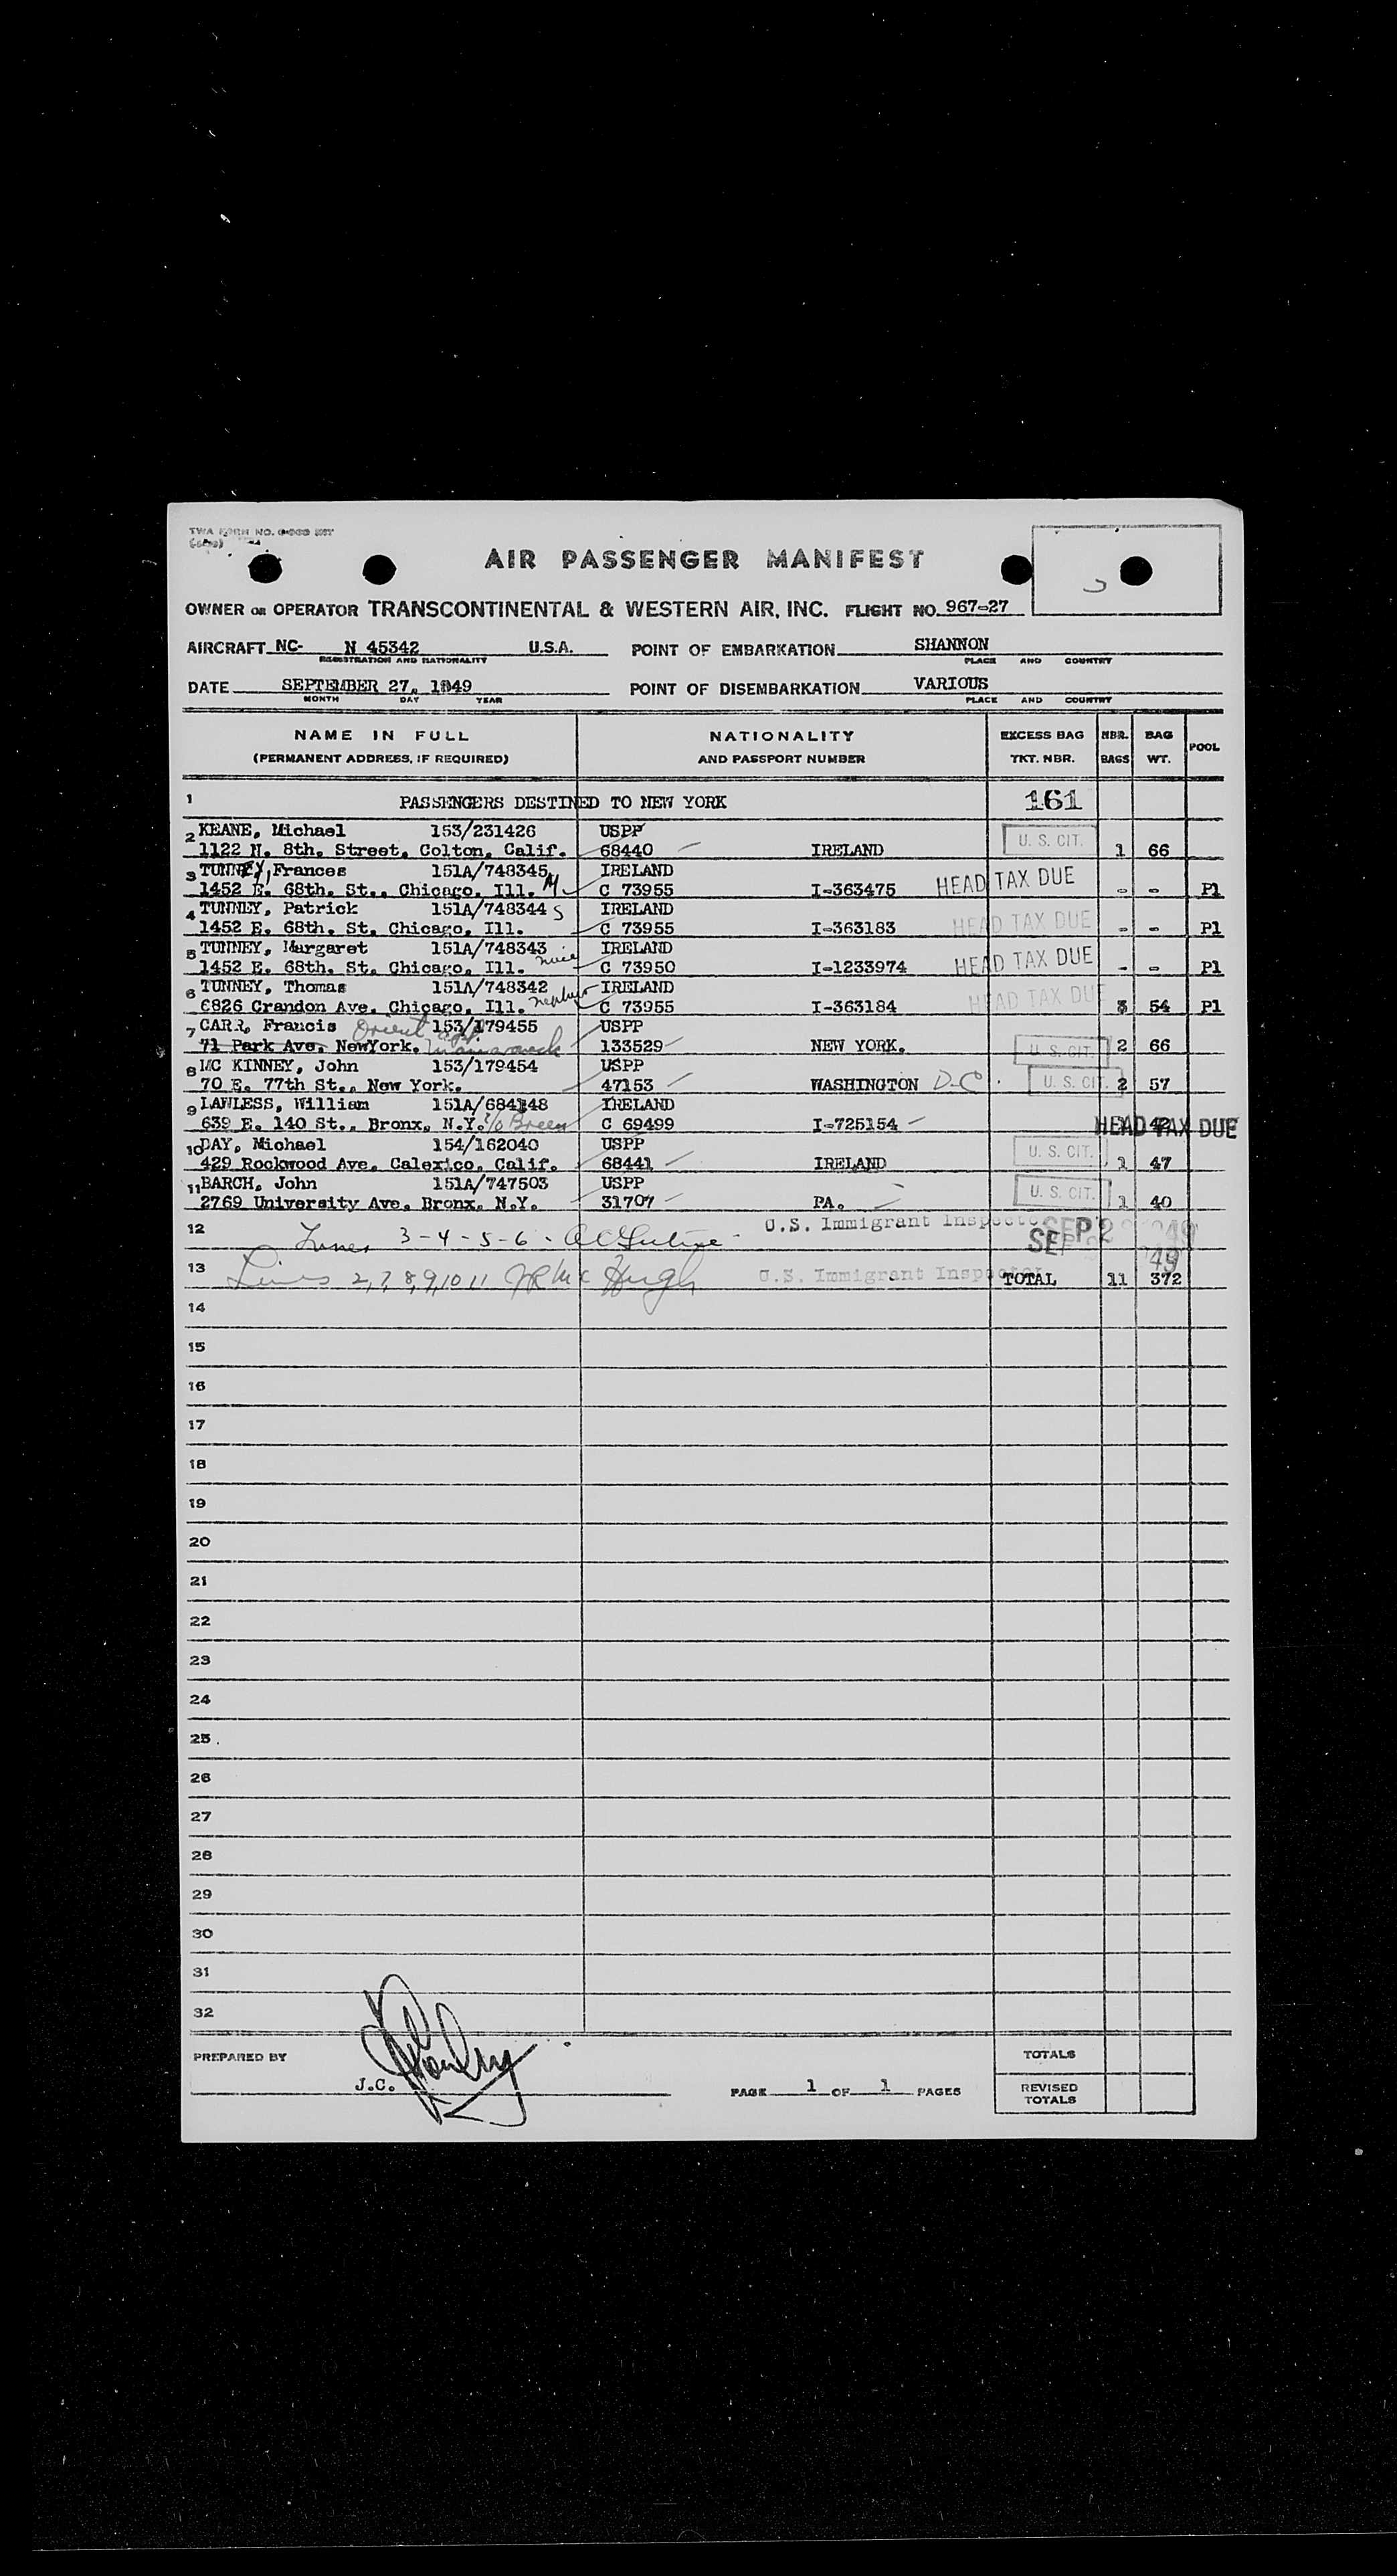 AIR PASSENGER MANIFEST
OWNER OR OPERATOR TRANSCONTINENTAL & WESTERN AIR, INC. FLIGHT NO. 967-27
AIRCRAFT NC- N 45342 U.S.A. POINT OF EMBARKATION SHANNON
REGISTRATION AND NATIONALITY PLACE AND COUNTRY
DATE SEPTEMBER 27, 1949 POINT OF DISEMBARKATION VARIOUS
MONTH DAY YEAR PLACE AND COUNTRY
NAME IN FULL NATIONALITY EXCESS BAG NBR. BAG POOL
(PERMANENT ADDRESS, IF REQUIRED) AND PASSPORT NUMBER TKT. NBR. BAGS WT.
1 PASSENGERS DESTINED TO NEW YORK 161
2 KEANE, Michael 153/231426 USPP U. S. CIT.
1122 N. 8th. Street, Colton, Calif. 68440 IRELAND 1 66
3 TUNNEY, Frances 151A/748345 IRELAND HEAD TAX DUE
1452 E. 68th. St., Chicago, Ill. M C 73955 I-363475 - - P1
4 TUNNEY, Patrick 151A/748344 S IRELAND HEAD TAX DUE
1452 E. 68th. St. Chicago, Ill. C 73955 I-363183 - - P1
5 TUNNEY, Margaret 151A/748343 IRELAND HEAD TAX DUE
1452 E. 68th. St. Chicago, Ill. niece C 73950 I-1233974 - - P1
6 TUNNEY, Thomas 151A/748342 IRELAND HEAD TAX DUE
6826 Crandon Ave. Chicago, Ill. nephew C 73955 I-363184 3 54 P1
7 CARR, Francis Orient 153/179455 USPP
71 Park Ave, NewYork. 133529 NEW YORK. U. S. CIT. 2 66
8 MC KINNEY, John 153/179454 USPP
70 E. 77th St., New York. 47153 WASHINGTON D-C U. S. CIT. 2 57
9 LAWLESS, William 151A/684148 IRELAND
639 E. 140 St., Bronx, N.Y. c/o Breen C 69499 I-725154 HEAD TAX DUE 42
10 DAY, Michael 154/162040 USPP U. S. CIT.
429 Rockwood Ave. Calexico, Calif. 68441 IRELAND 1 47
11 BARCH, John 151A/747503 USPP U. S. CIT.
2769 University Ave. Bronx, N.Y. 31707 PA. 1 40
12 Lines 3-4-5-6 - U.S. Immigrant Inspector SEP 2 49
13 Lines 2,7,8,9,10 11 JR Mc Hugh U.S. Immigrant Inspector TOTAL 11 372
14
15
16
17
18
19
20
21
22
23
24
25
26
27
28
29
30
31
32
PREPARED BY TOTALS
J.C. PAGE 1 OF 1 PAGES REVISED
TOTALS